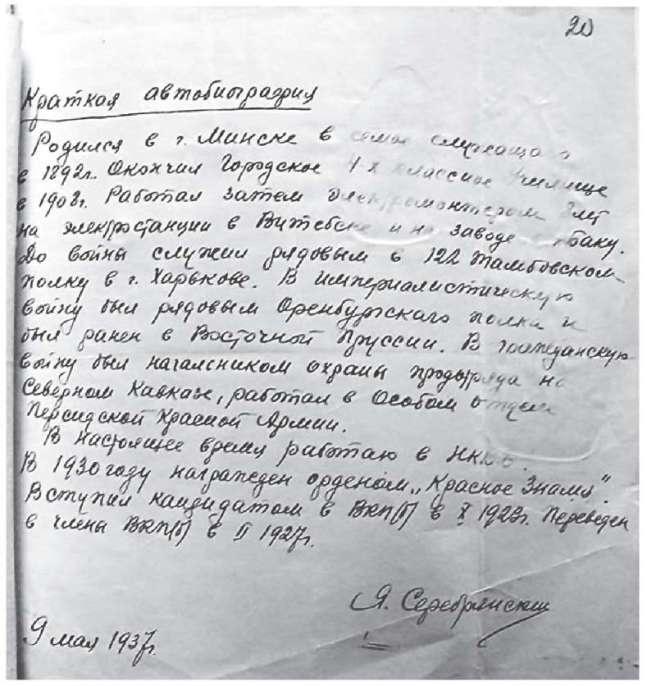 20
Краткая автобиография
Родился в г. Минске в семье служащего
в 1892г. Окончил Городское 4х классное училище
в 1908г. Работал затем электромонтером
на электростанции в Витебске и на заводе Баку.
До войны служил рядовым в 122 Тамбовском
полку в г. Харькове. В империалистическую
войну был рядовым Оренбургского полка и
был ранен в Восточной Пруссии. В гражданскую
войну был начальником охраны продотряда на
Северном Кавказе, работал в Особом отделе
Персидской Красной Армии.
В настоящее время работаю в НКВД.
В 1930 году награжден орденом „Красное Знамя".
Вступил кандидатом в ВКП(б) в X Переведен
в члена ВКП(б) в II 1927г.
Я. Серебрянский
9 мая 1937г.